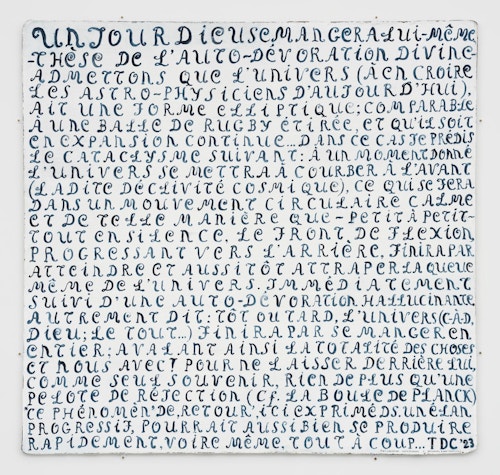 UN JOUR DIEU SE MANGERA LUI-MÊME
THÈSE DE L'AUTO-DÉVORATION DIVINE
ADMETTONS QUE L'UNIVERS (À EN CROIRE
LES ASTRO-PHYSICIENS D'AUJOURD'HUI),
AIT UNE FORME ELLIPTIQUE; COMPARABLE
À UNE BALLE DE RUGBY ÉTIRÉE, ET QU'IL SOIT
EN EXPANSION CONTINUE... DANS CE CAS JE PRÉDIS
LE CATACLYSME SUIVANT: À UN MOMENT DONNÉ
L'UNIVERS SE METTRA À COURBER À L'AVANT
(LADITE DÉCLIVITÉ COSMIQUE), CE QUI SE FERA
DANS UN MOUVEMENT CIRCULAIRE CALME
ET DE TELLE MANIÈRE QUE-PETIT À PETIT-
TOUT EN SILENCE, LE FRONT DE FLEXION
PROGRESSANT VERS L'ARRIÈRE, FINIRA PAR
ATTEINDRE ET AUSSITÔT ATTRAPER LA QUEUE
MÊME DE L'UNIVERS. IMMÉDIATEMENT
SUIVI D'UNE AUTO-DÉVORATION HALLUCINANTE
AUTREMENT DIT: TÔT OU TARD, L'UNIVERS (C-À.D.
DIEU; LE TOUT...) FINIRA PAR SE MANGER EN
ENTIER; AVALANT AINSI LA TOTALITÉ DES CHOSES
ET NOUS AVEC! POUR NE LAISSER DERRIÈRE LUI,
COMME SEUL SOUVENIR, RIEN DE PLUS QU'UNE
PELOTE DE RÉJECTION (Cf. LA BOULE DE PLANCK)
CE PHÉNOMÈN' DE RETOUR, ICI EXPRIMÉ DS. UN ÉLAN
PROGRESSIF, POURRAIT AUSSI BIEN SE PRODUIRE
RAPIDEMENT, VOIRE MÊME, TOUT À COUP... TDC '23